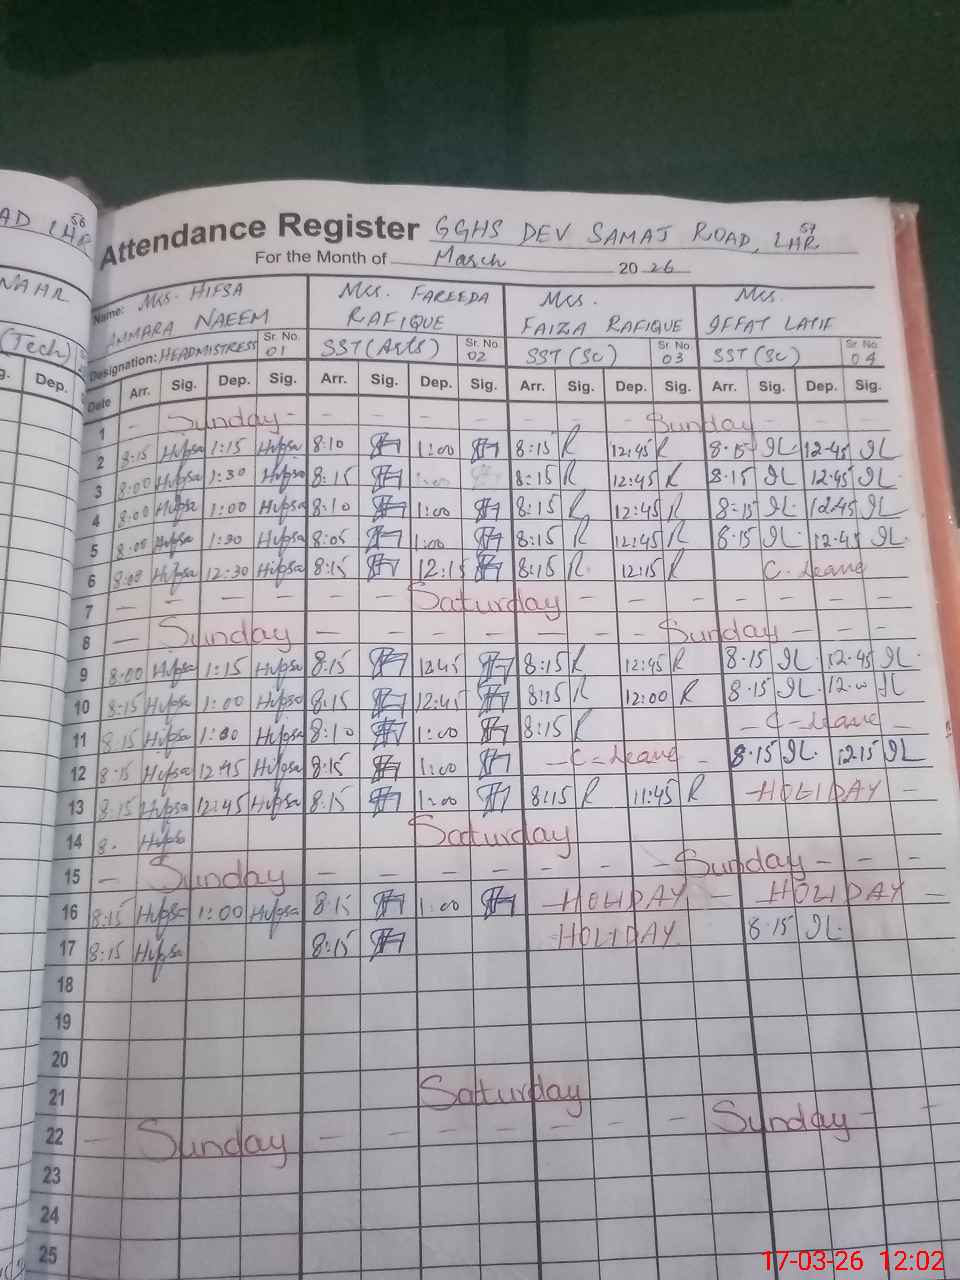 56
AD LHR
NAHR
(Tech)
Dep.
Attendance Register GGHS DEV SAMAJ ROAD, LHR 57
For the Month of March 20 26
Name: Mrs. HIFSA AMMARA NAEEM Mrs. FAREEDA RAFIQUE Mrs. FAIZA RAFIQUE Mrs. IFFAT LATIF
Designation: HEADMISTRESS Sr. No. 01 SST (Arts) Sr. No. 02 SST (Sc) Sr. No. 03 SST (SC) Sr. No. 04
Date Arr. Sig. Dep. Sig. Arr. Sig. Dep. Sig. Arr. Sig. Dep. Sig. Arr. Sig. Dep. Sig.
1 - Sunday - - - - - - - Sunday - - -
2 8:15 Hifsa 1:15 Hifsa 8:10 1:00 8:15 R 12:45 R 8.15 IL. 12.45 IL
3 8:00 Hifsa 1:30 Hifsa 8:15 1:00 8:15 R 12:45 R 8.15 IL 12.45 IL.
4 8:00 Hifsa 1:00 Hifsa 8:10 1:00 8:15 R 12:45 R 8:15 IL. 12.45 IL
5 8:05 Hifsa 1:30 Hifsa 8:05 1:00 8:15 R 12:45 R 8.15 IL 12.45 IL.
6 8:00 Hifsa 12:30 Hifsa 8:15 12:15 8:15 R. 12:15 R C. Leave
7 - - - - - Saturday - - - - - -
8 - Sunday - - - - - - Sunday - - -
9 8:00 Hifsa 1:15 Hifsa 8:15 12:45 8:15 R 12:45 R 8.15 IL 12.45 IL.
10 8:15 Hifsa 1:00 Hifsa 8:15 12:45 8:15 R 12:00 R 8.15 IL. 12.00 IL
11 8:15 Hifsa 1:00 Hifsa 8:10 1:00 8:15 R - C-Leave -
12 8:15 Hifsa 12:45 Hifsa 8:15 1:00 - C-Leave - 8.15 IL. 12.15 IL
13 8:15 Hifsa 12:45 Hifsa 8:15 1:00 8:15 R 11:45 R - HOLIDAY -
14 8. Hifs Saturday
15 - Sunday - - - - - - - Sunday - - -
16 8:15 Hifsa 1:00 Hifsa 8:15 1:00 - HOLIDAY - HOLIDAY -
17 8:15 Hifsa 8:15 HOLIDAY 8.15 IL.
18
19
20
21 Saturday
22 - Sunday - - - - - - - Sunday - -
23
24
25
17-03-26 12:02